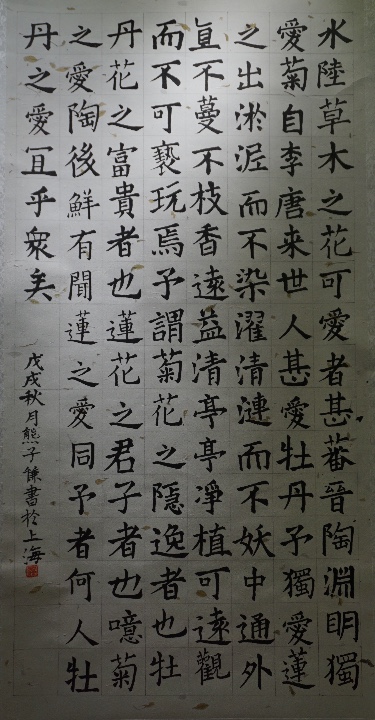 水陸草木之花可愛者甚蕃晉陶淵眀獨
愛菊自李唐来世人甚愛牡丹予獨愛蓮
之出淤泥而不染濯清漣而不妖中通外
直不蔓不枝香遠益清亭亭淨植可遠觀
而不可褻玩焉予謂菊花之隱逸者也牡
丹花之富貴者也蓮花之君子者也噫菊
之愛陶後鮮有聞蓮之愛同予者何人牡
丹之愛冝乎衆矣
戊戌秋月熊子書於上海